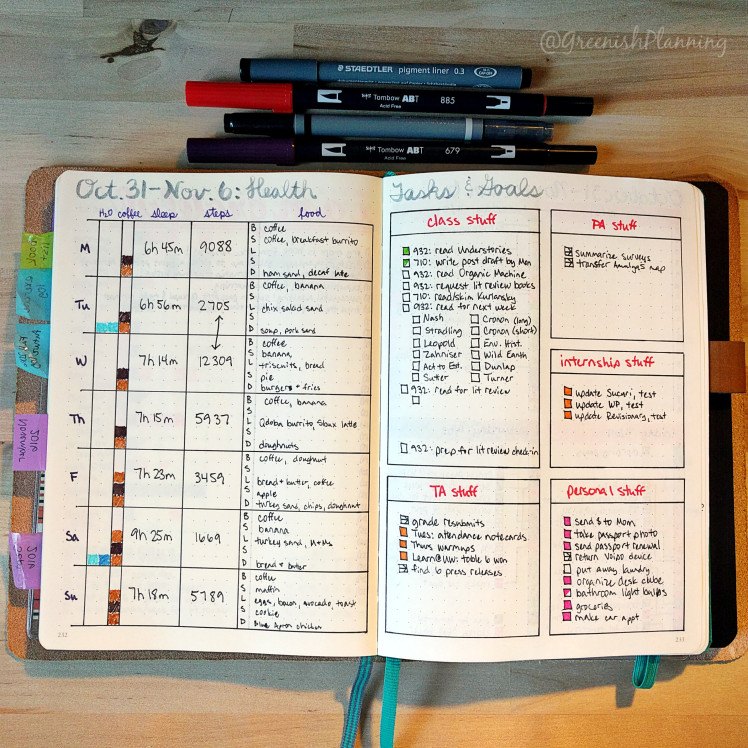 @GreenishPlanning
STAEDTLER pigment liner 0.3
Tombow ABT 885
Acid Free
Tombow ABT 679
Acid Free
Oct. 31-Nov. 6: Health
H2O coffee sleep steps food
M
6h 45m
9088
B coffee
S coffee, breakfast burrito
L
S
D ham sand, decaf latte
Tu
6h 56m
2705
B coffee, banana
S
L chix salad sand
S
D soup, pork sand
W
7h 14m
12309
B coffee
S banana
L triscuits, bread
S pie
D burgers + fries
Th
7h 15m
5937
B coffee, banana
S
L Qdoba burrito, Sbux latte
S
D doughnuts
F
7h 23m
3459
B coffee, doughnut
S
L bread + butter, coffee
S apple
D turkey sand, chips, doughnut
Sa
9h 25m
1669
B coffee
S banana
L turkey sand, M+Ms
S
D bread + butter
Su
7h 18m
5789
B coffee
S muffin
L eggs, bacon, avocado, toast
S cookie
D Blue Apron chicken
232
Tasks & Goals
class stuff
932: read Understories
710: write post draft by Mon
932: read Organic Machine
932: request lit review books
710: read/skim Kurlansky
932: read for next week
Nash
Cronon (long)
Stradling
Cronon (short)
Leopold
Env. Hist.
Zahniser
Wild Earth
Act to Est.
Dunlap
Sutter
Turner
932: read for lit review
932: prep for lit review check-in
PA stuff
summarize surveys
transfer Analysis map
internship stuff
update Sucuri, test
update WP, test
update Revisionary, test
TA stuff
grade resubmits
Tues: attendance notecards
Thurs warmups
Learn@UW: table 6 won
find 6 press releases
personal stuff
send $ to Mom
take passport photo
send passport renewal
return Voipo device
put away laundry
organize desk cube
bathroom light bulbs
groceries
make car appt
233